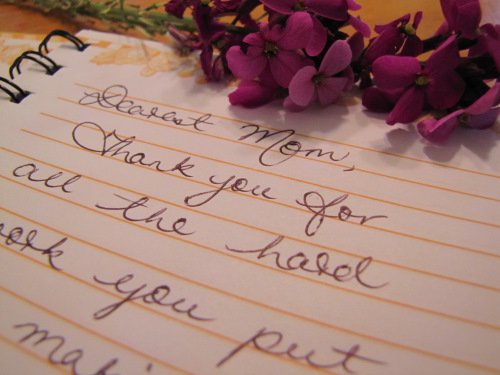 Dearest Mom,
Thank you for
all the hard
work you put